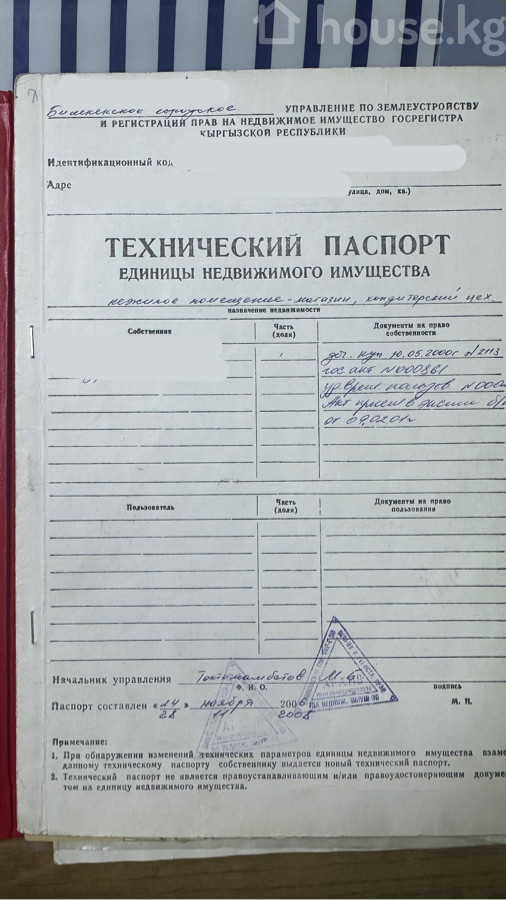 house.kg
Бишкекское городское УПРАВЛЕНИЕ ПО ЗЕМЛЕУСТРОЙСТВУ
И РЕГИСТРАЦИИ ПРАВ НА НЕДВИЖИМОЕ ИМУЩЕСТВО ГОСРЕГИСТРА
КЫРГЫЗСКОЙ РЕСПУБЛИКИ
Идентификационный код
Адре
улица, дом, кв.)
ТЕХНИЧЕСКИЙ ПАСПОРТ
ЕДИНИЦЫ НЕДВИЖИМОГО ИМУЩЕСТВА
нежилое помещение - магазин, кондитерский цех
назначение недвижимости
Собственник Часть (доля) Документы на право собственности
дог. куп 10.05.2000г №2113
гос акт №000861
от
Пользователь Часть (доля) Документы на право пользования
Начальник управления Токтомамбетов М.Б.
Ф. И. О. подпись
Паспорт составлен «24» ноября 2006 М. П.
28 11 2008
Примечание:
1. При обнаружении изменений технических параметров единицы недвижимого имущества взаме
данному техническому паспорту собственнику выдается новый технический паспорт.
2. Технический паспорт не является правоустанавливающим и/или правоудостоверяющим докуме
том на единицу недвижимого имущества.